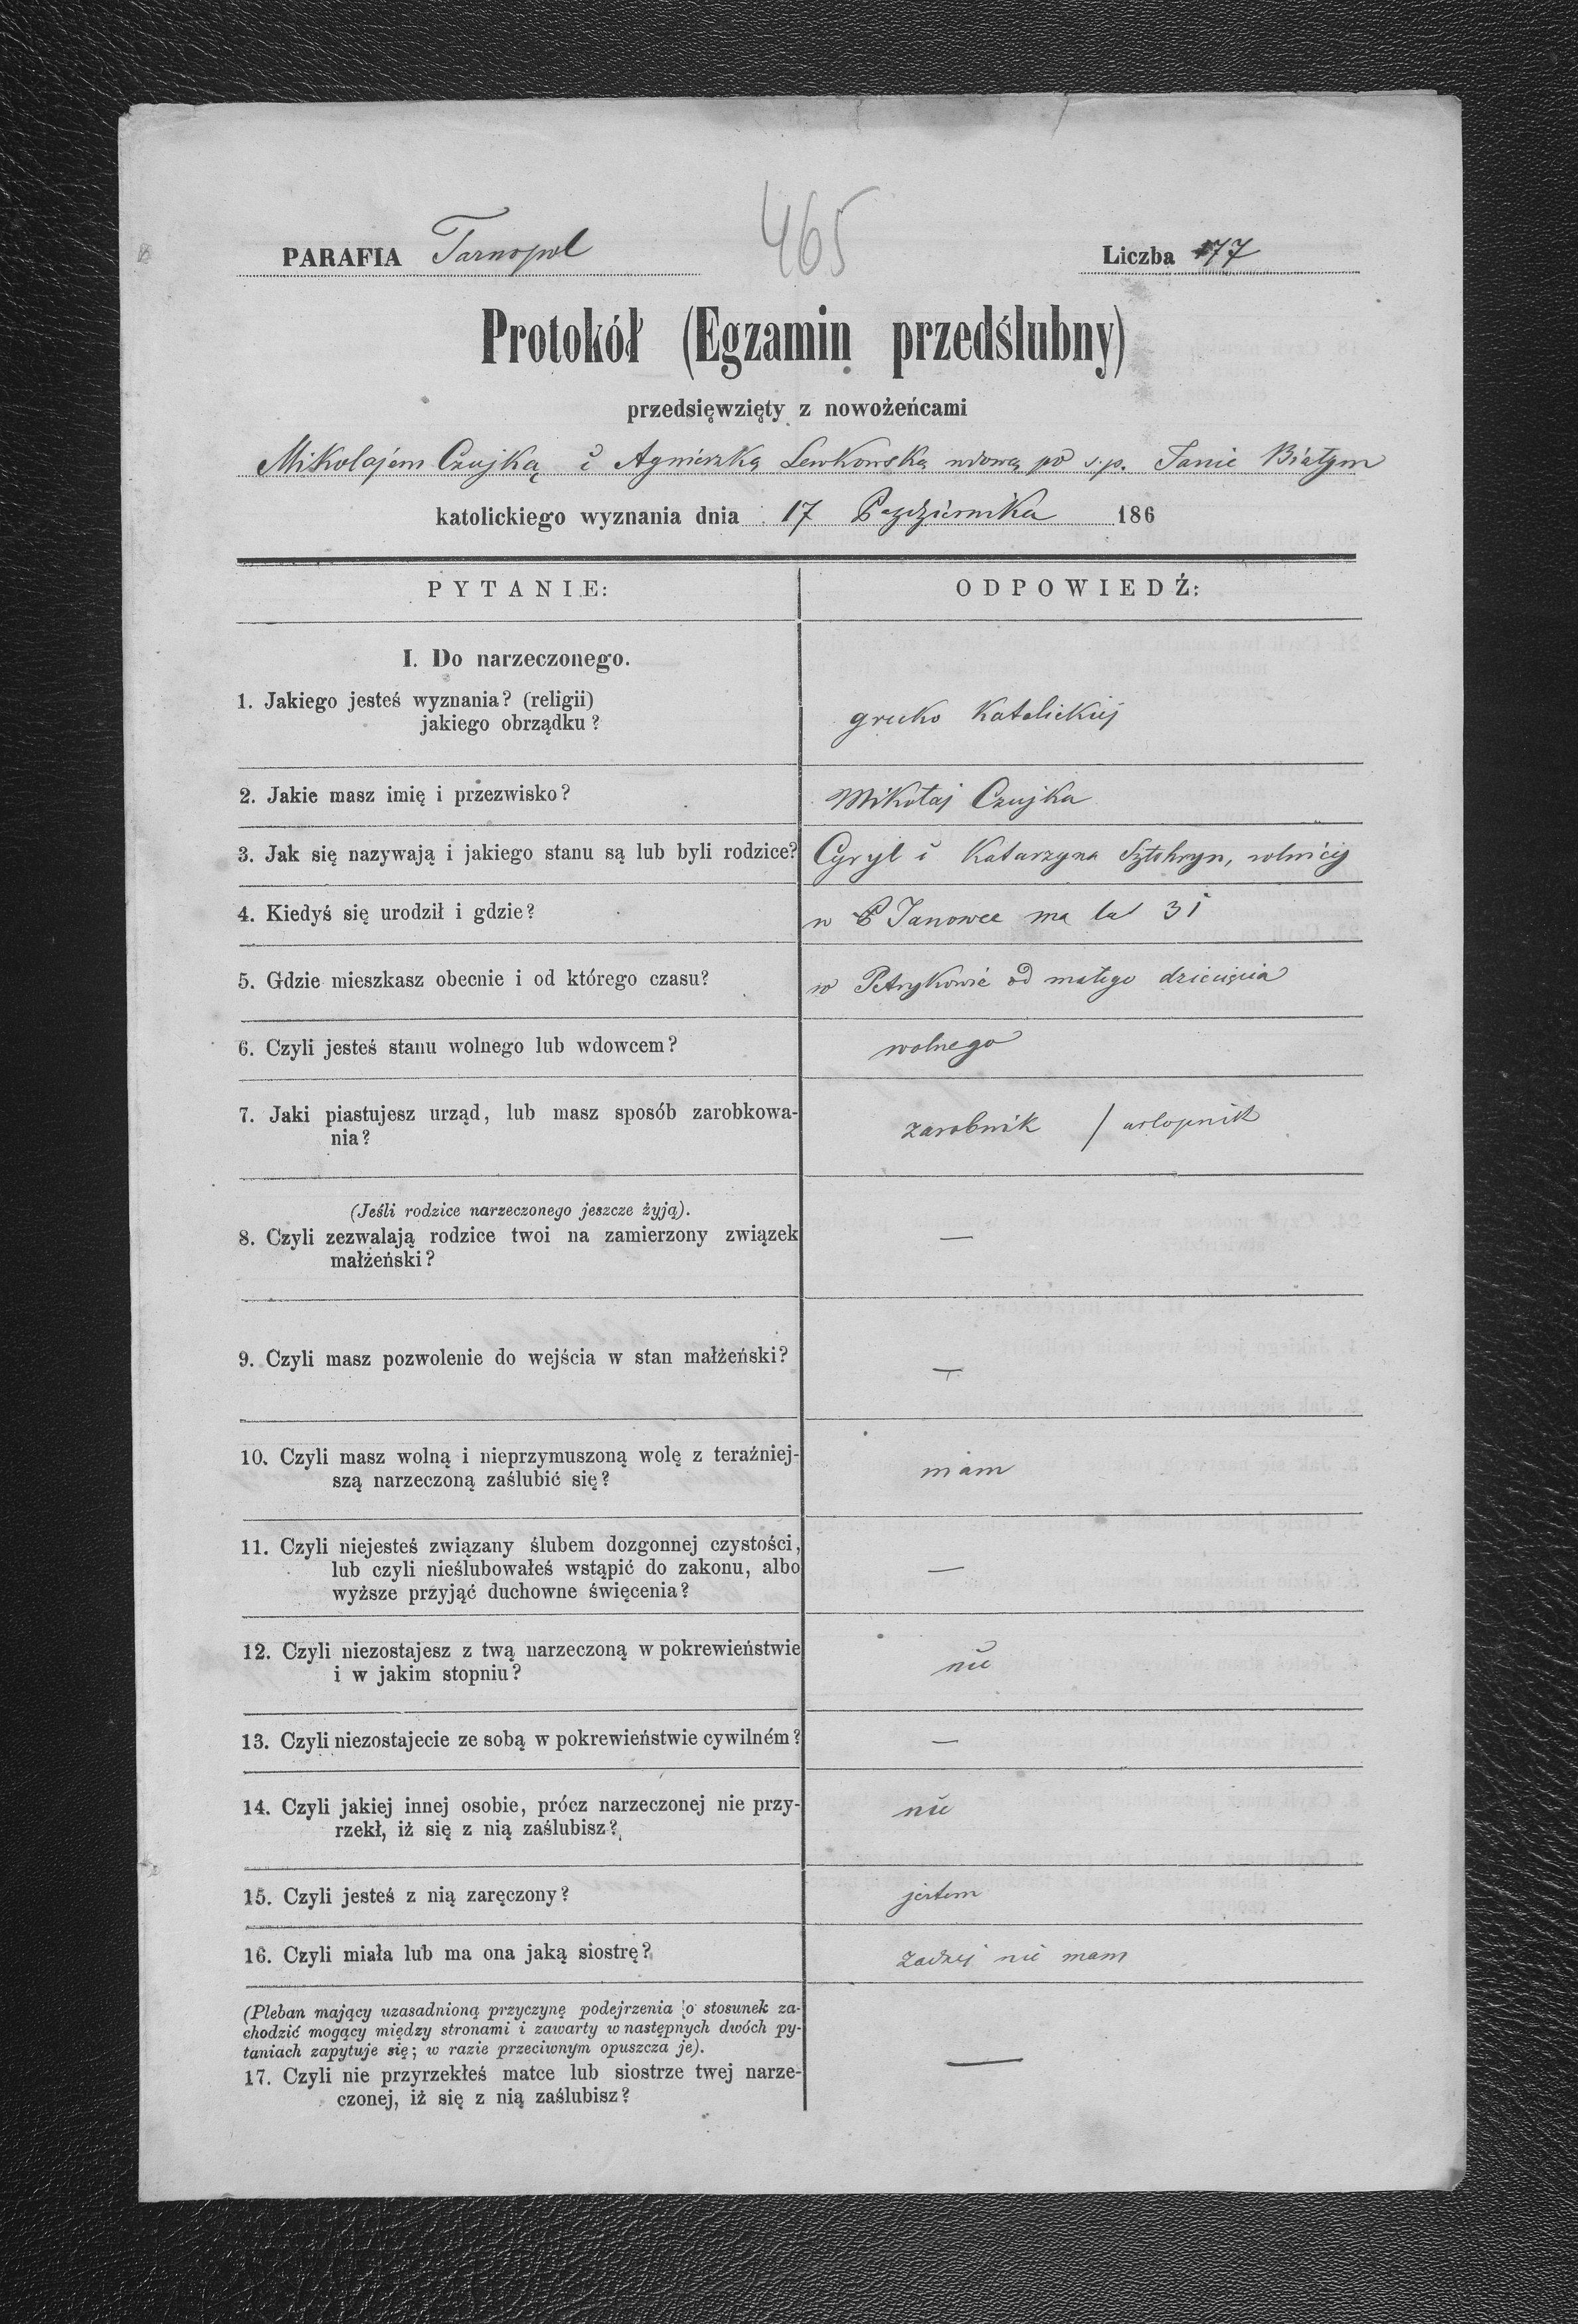 465
PARAFIA Tarnopol Liczba 177
Protokół (Egzamin przedślubny)
przedsięwzięty z nowożeńcami
Mikołajem Czujką i Agnieszką Lewkowską wdową po ś.p. Janie Białym
katolickiego wyznania dnia 17 Pazdziernika 186
PYTANIE: ODPOWIEDŹ:
I. Do narzeczonego.
1. Jakiego jesteś wyznania? (religii)
jakiego obrządku?
grecko katolickiej
2. Jakie masz imię i przezwisko? Mikołaj Czujka
3. Jak się nazywają i jakiego stanu są lub byli rodzice? Cyryl i Katarzyna rolnicy
4. Kiedyś się urodził i gdzie? w Janowce ma lat 31
5. Gdzie mieszkasz obecnie i od którego czasu? w Petrykowie od małego dziecięcia
6. Czyli jesteś stanu wolnego lub wdowcem? wolnego
7. Jaki piastujesz urząd, lub masz sposób zarobkowa-
nia?
zarobnik / urlopnik
(Jeśli rodzice narzeczonego jeszcze żyją).
8. Czyli zezwalają rodzice twoi na zamierzony związek —
małżeński?
9. Czyli masz pozwolenie do wejścia w stan małżeński? —
10. Czyli masz wolną i nieprzymuszoną wolę z teraźniej-
szą narzeczoną zaślubić się?
mam
11. Czyli niejesteś związany ślubem dozgonnej czystości,
lub czyli nieślubowałeś wstąpić do zakonu, albo —
wyższe przyjąć duchowne święcenia?
12. Czyli niezostajesz z twą narzeczoną w pokrewieństwie
i w jakim stopniu?
nie
13. Czyli niezostajecie ze sobą w pokrewieństwie cywilném? —
14. Czyli jakiej innej osobie, prócz narzeczonej nie przy-
rzekł, iż się z nią zaślubisz?
nie
15. Czyli jesteś z nią zaręczony? jestem
16. Czyli miała lub ma ona jaką siostrę? nie mam
(Pleban mający uzasadnioną przyczynę podejrzenia o stosunek za-
chodzić mogący między stronami i zawarty w następnych dwóch py-
taniach zapytuje się; w razie przeciwnym opuszcza je).
17. Czyli nie przyrzekłeś matce lub siostrze twej narze- —
czonej, iż się z nią zaślubisz?